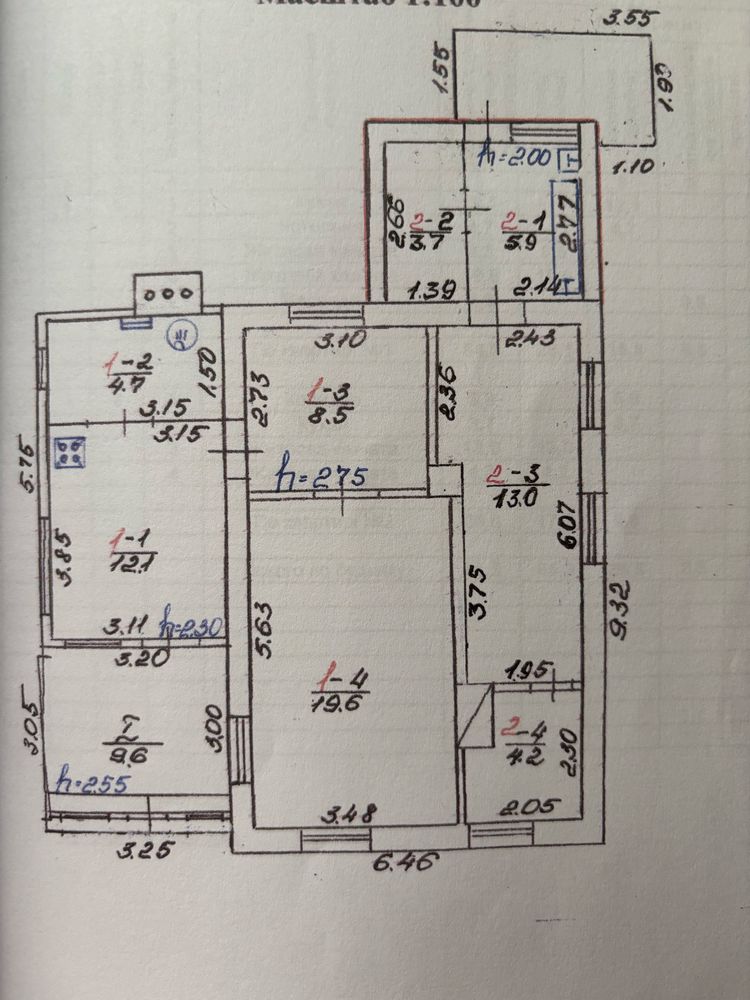 Масштаб 1:100
3.55
1.55
1.90
1.10
h=2.00
2.66
2-2
3.7
2-1
5.9
2.77
1.39
2.14
Т
Т
3.10
2.43
1-2
4.7
1.50
3.15
2.73
1-3
8.5
2.36
3.15
5.75
h=2.75
2-3
13.0
6.07
3.85
1-1
12.1
3.75
9.32
3.11
h=2.30
3.20
5.63
1-4
19.6
1.95
3.05
I
9.6
3.00
2-4
4.2
2.30
h=2.55
3.48
2.05
3.25
6.46